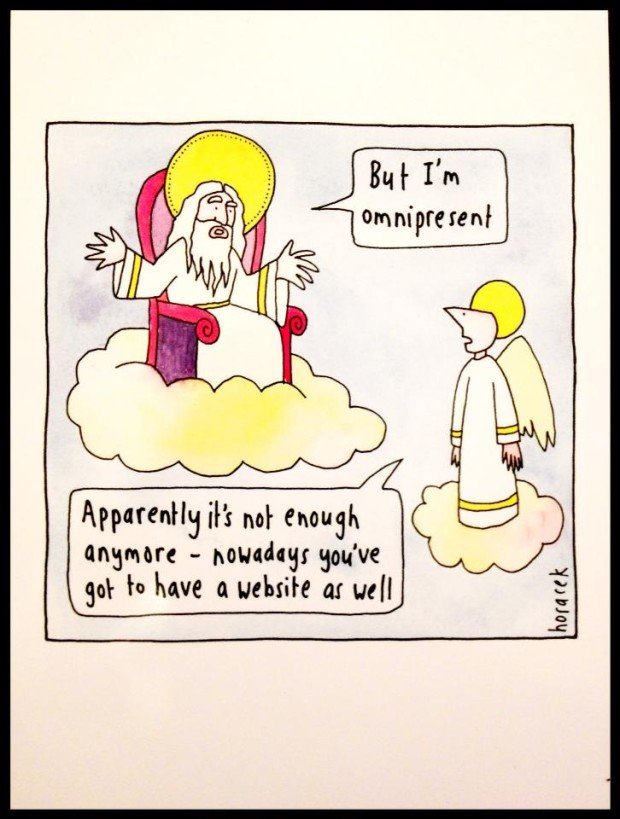 But I'm
omnipresent
Apparently it's not enough
anymore – nowadays you've
got to have a website as well
horacek